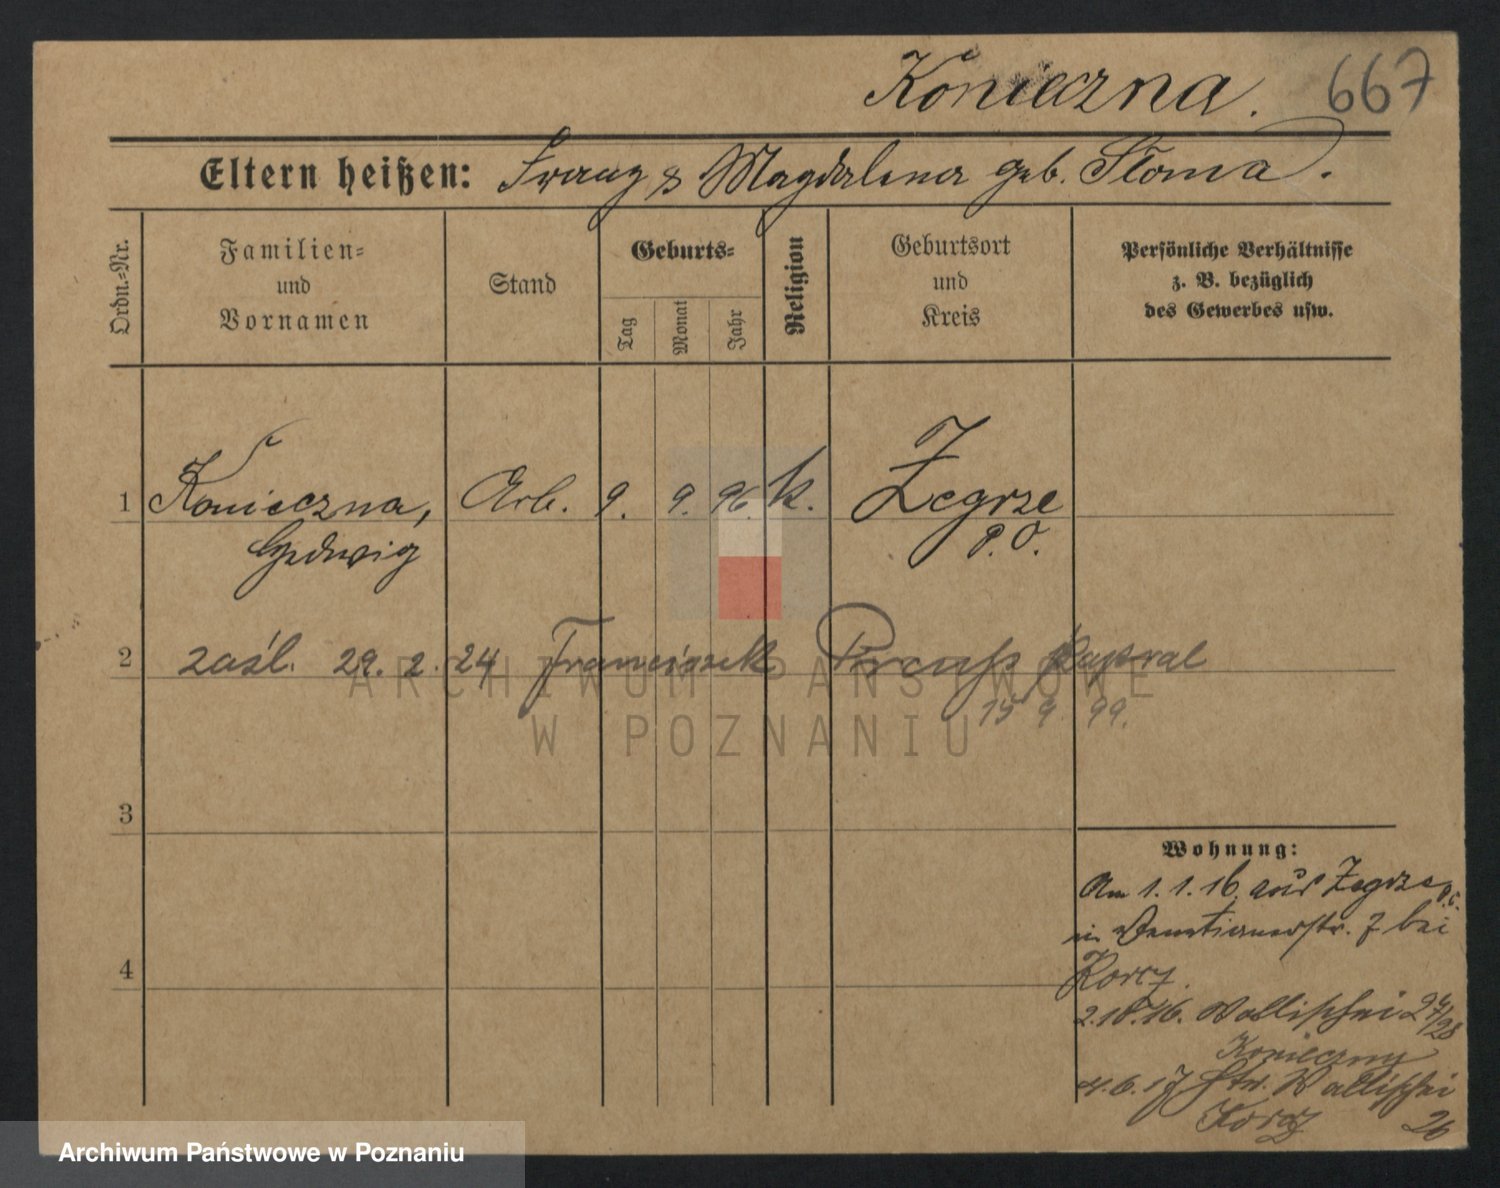 Konieczna. 667
Eltern heißen: Franz & Magdalena geb. Słoma.
Ordn.-Nr.
Familien-
und
Vornamen
Stand
Geburts-
Tag
Monat
Jahr
Religion
Geburtsort
und
Kreis
Persönliche Verhältnisse
z. B. bezüglich
des Gewerbes usw.
1 Konieczna, Arb. 9. 9. 96. k. Zegrze
Hedwig P. O.
2 zaśl. 29. 2. 24 Franciszek kapral
15 9 99.
3
Wohnung:
Am 1. 1. 16. aus Zegrze P. O.
in Venetianerstr. 7 bei
4
Korcz.
Wallischei 27/28
Konieczny
4. 6. 17 Wallischei
Korcz 26
ARCHIWUM PAŃSTWOWE
W POZNANIU
Archiwum Państwowe w Poznaniu